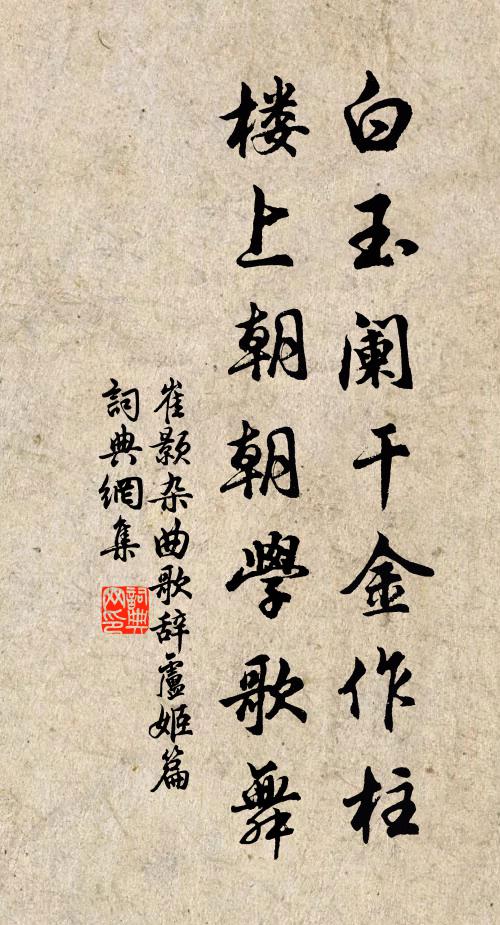 白玉阑干金作柱
楼上朝朝學歌舞
崔颢杂曲歌辞盧姬篇
詞典網集
詞典網印